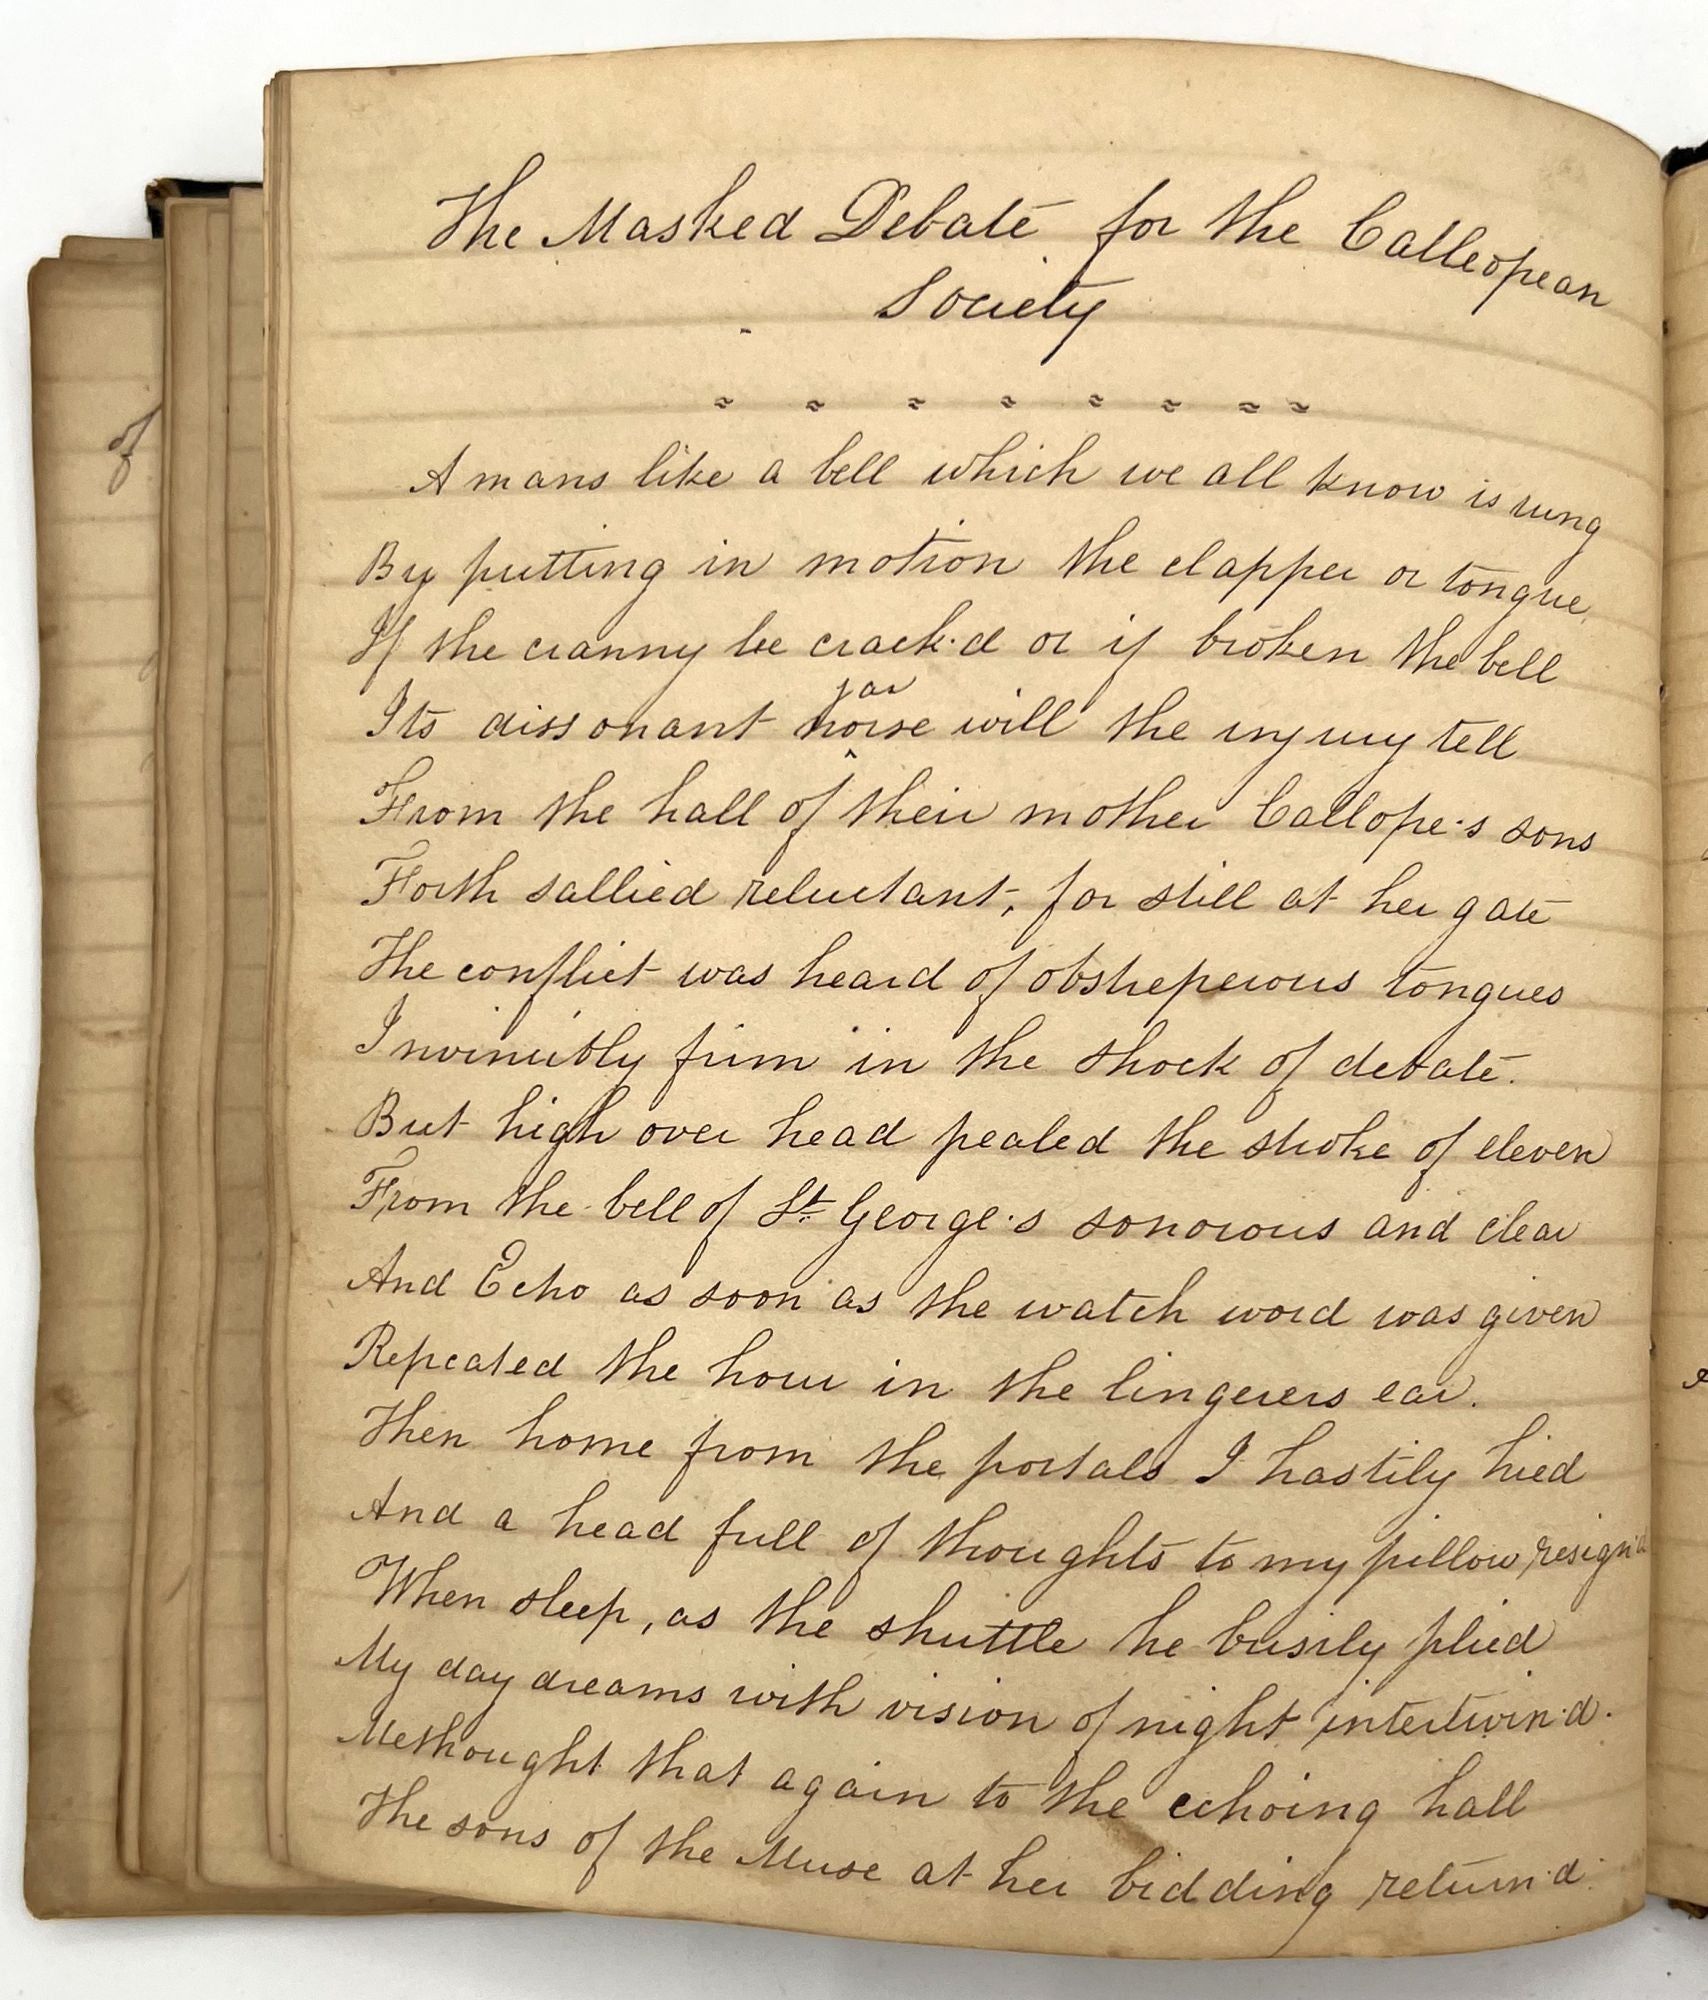 The Masked Debate for the Calleopean
Society
A mans like a bell which we all know is rung
By putting in motion the clapper or tongue,
If the cranny be crack'd or if broken the bell
jar
Its dissonant noise will the injury tell
From the hall of their mother Callope's sons
Forth sallied reluctant, for still at her gate
The conflict was heard of obstreperous tongues
Invincibly firm in the shock of debate.
But high over head pealed the stroke of eleven
From the bell of St. George's sonorous and clear
And Echo as soon as the watch word was given
Repeated the hour in the lingerers ear.
Then home from the portals I hastily hied
And a head full of thoughts to my pillow resign'd
When sleep, as the shuttle he busily plied
My day dreams with vision of night intertwin'd.
Methought that again to the echoing hall
The sons of the Muse at her bidding return'd.
of